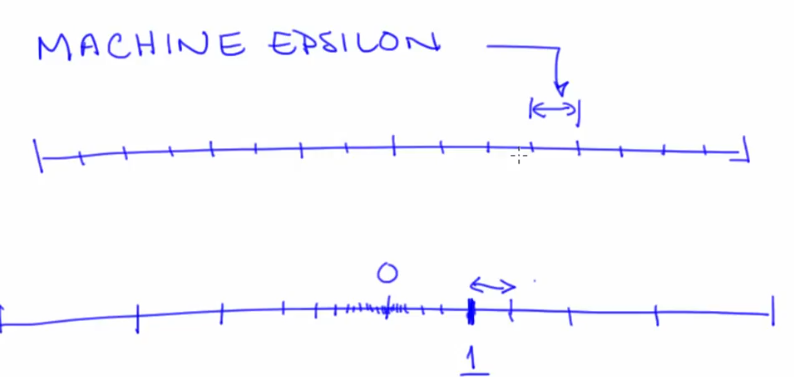 MACHINE EPSILON
0
1